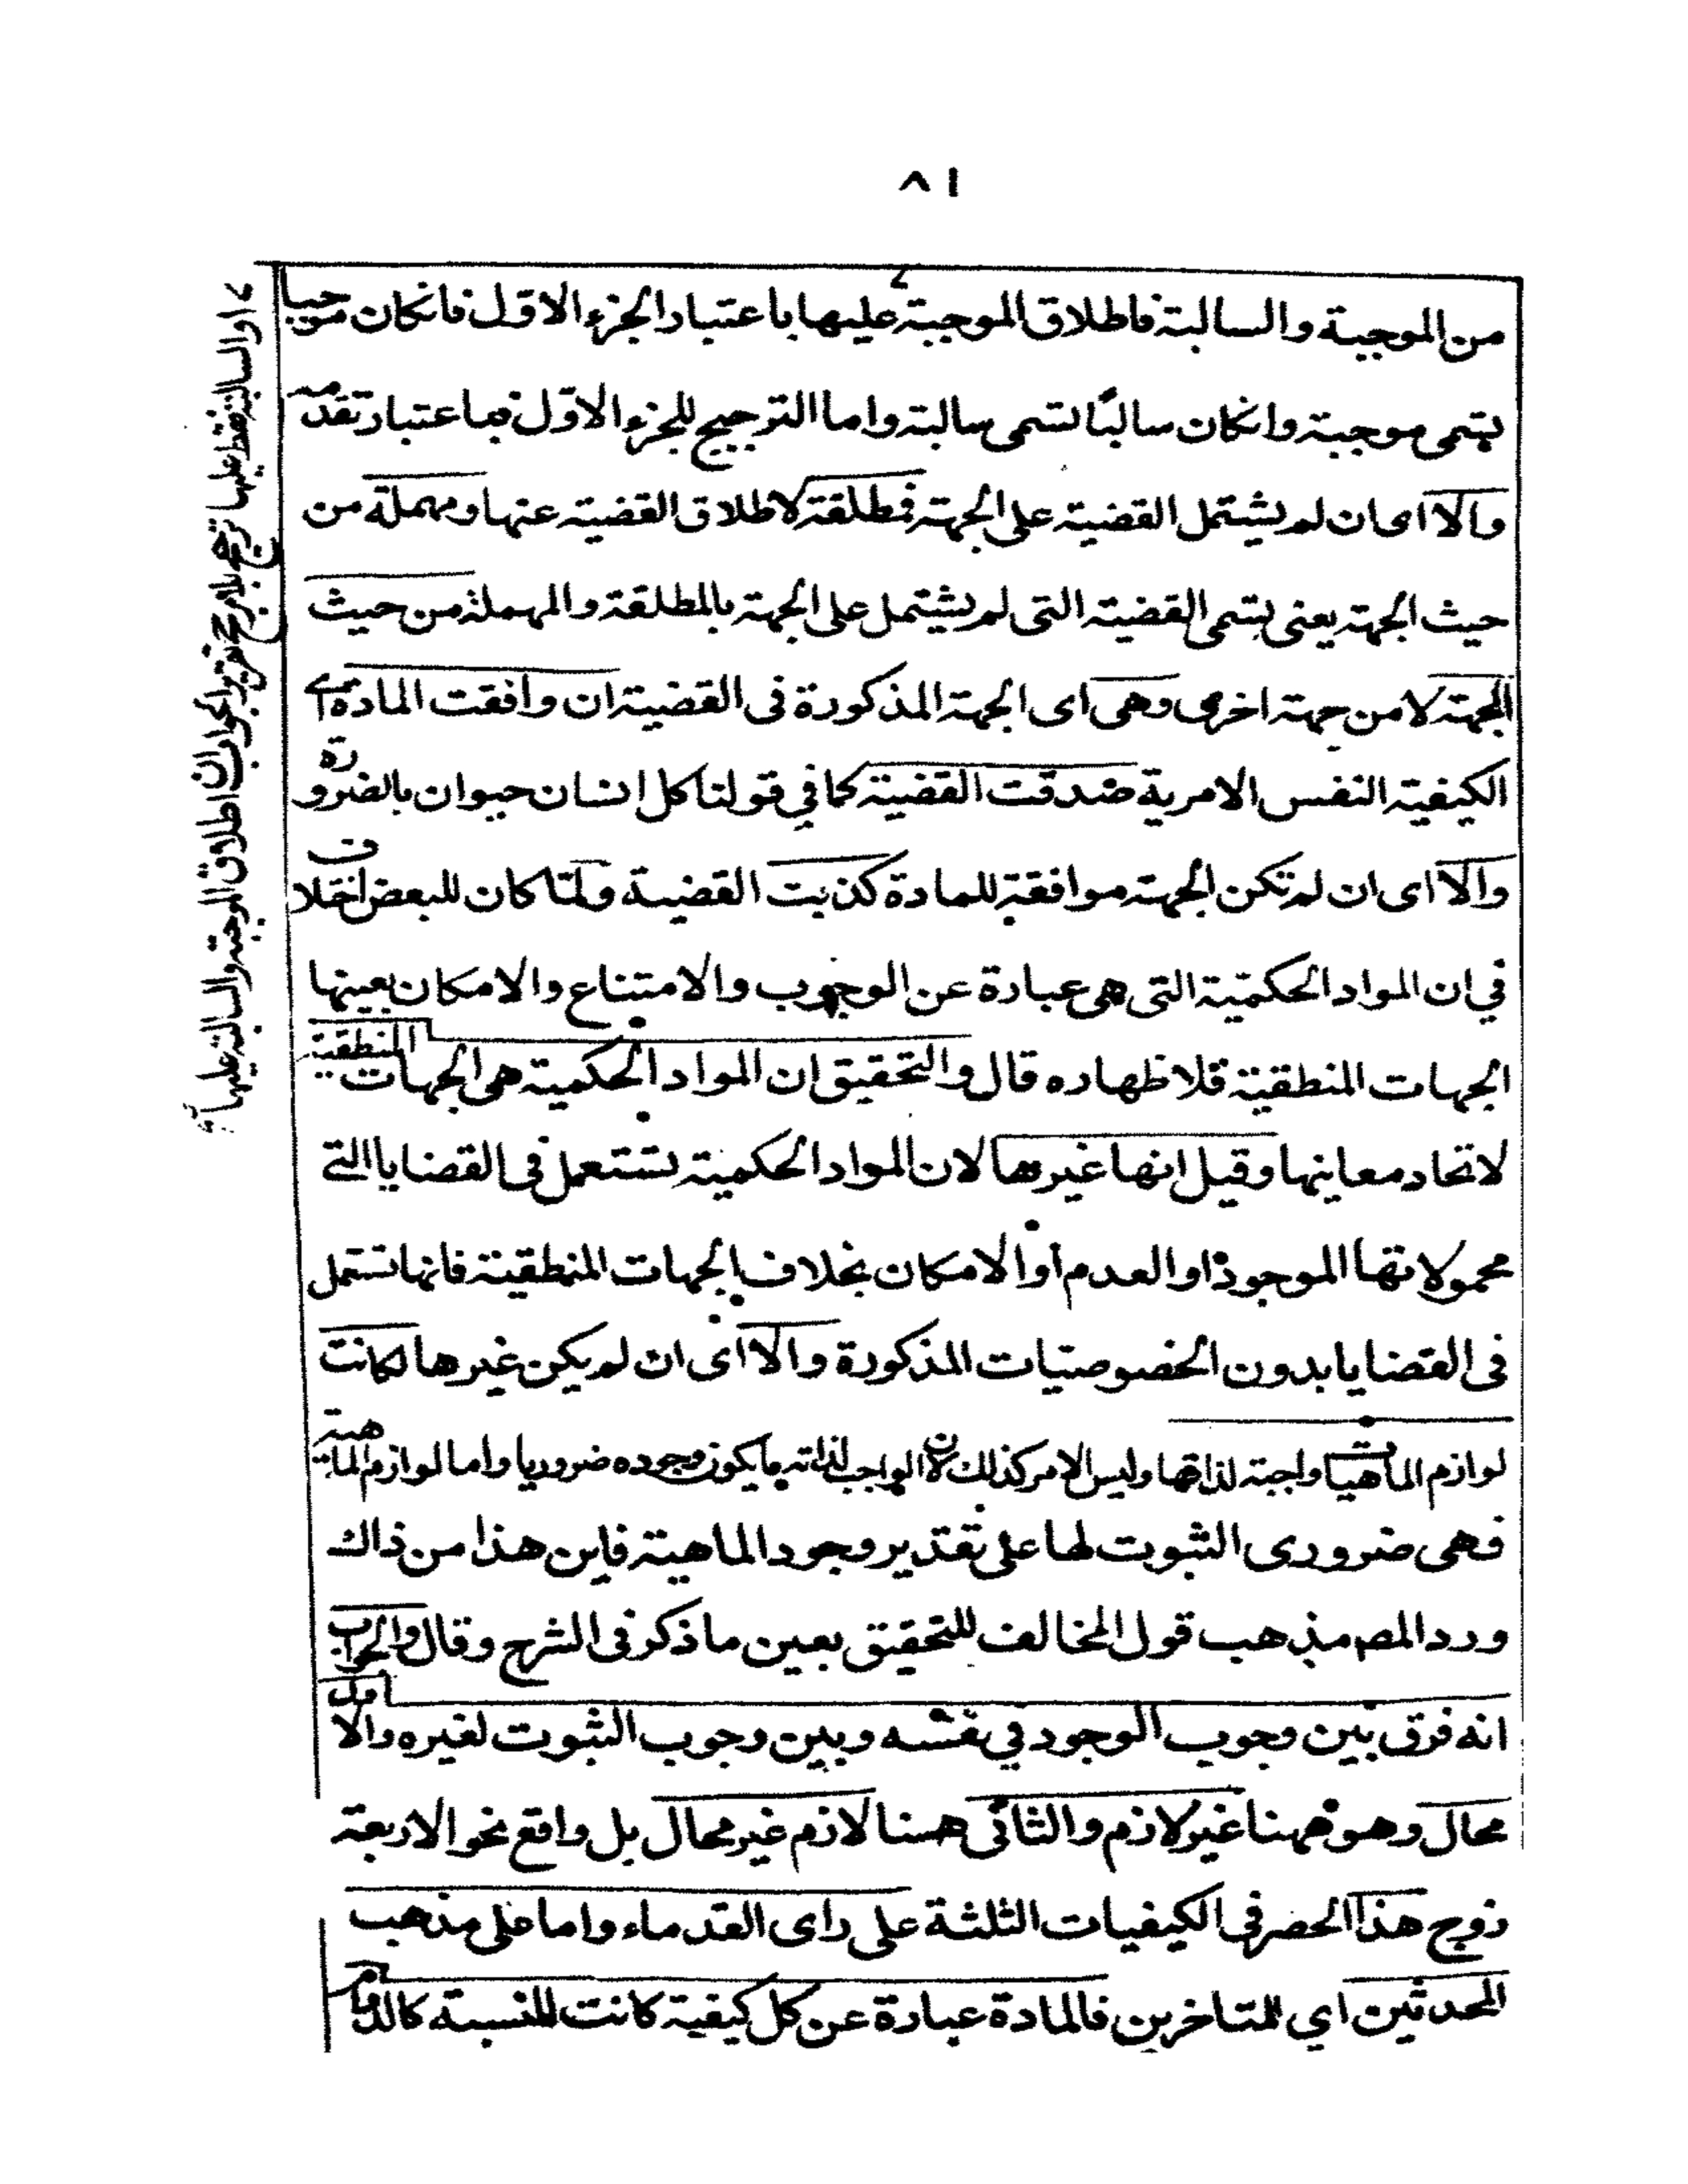 ٨١
من الموجبة والسالبة فاطلاق الموجبة عليها باعتبار الجزء الاول فانكان موجبا
يسمى موجبة وانكان سالبًا تسمى سالبة واما الترجيح للجزء الاوّل فباعتبار تقدمه
والا اى ان لم يشتمل القضية على الجهة فمطلقة لاطلاق القضية عنها ومهملة من
حيث الجهة يعنى يسمى القضية التى لم يشتمل على الجهة بالمطلقة والمهملة من حيث
الجهة لا من جهة اخرى وهى اى الجهة المذكورة فى القضية ان وافقت المادة اى
الكيفية النفس الامرية صدقت القضية كما في قولنا كل انسان حيوان بالضرورة
والا اى ان لم تكن الجهة موافقة للمادة كذبت القضية ولما كان للبعض اختلاف
في ان المواد الحكمية التى هى عبارة عن الوجوب والامتناع والامكان بعينها
الجهات المنطقية فلاظهاره قال والتحقيق ان المواد الحكمية هى الجهات المنطقية
لاتحاد معاينها وقيل انها غيرها لان المواد الحكمية تستعمل فى القضايا التى
محمولاتها الموجود او العدم او الامكان بخلاف الجهات المنطقية فانها تستمل
فى القضايا بدون الخصوصيات المذكورة والا اى ان لم يكن غيرها لكانت
لوازم الماهيات واجبة لذاتها وليس الامر كذلك لان الواجب لذاته ما يكون وجوده ضروريا واما لوازم الماهية
فهى ضرورى الثبوت لها على تقدير وجود الماهية فاين هذا من ذاك
ورد المصم مذهب قول المخالف للتحقيق بعين ما ذكر فى الشرح وقال والجواب
انه فرق بين وجوب الوجود في نفسه وبين وجوب الثبوت لغيره والاول
محال وهو ههنا غير لازم والثانى ههنا لازم غير محال بل واقع نحو الاربعة
زوج هذا الحصر فى الكيفيات الثلثة على راى القدماء واما على مذهب
المحدثين اي المتاخرين فالمادة عبارة عن كل كيفية كانت للنسبة كالدوام
او السالبة فقط عليها ترجيح بلا مرجح تقرير الجواب ان اطلاق الموجبة والسالبة عليها